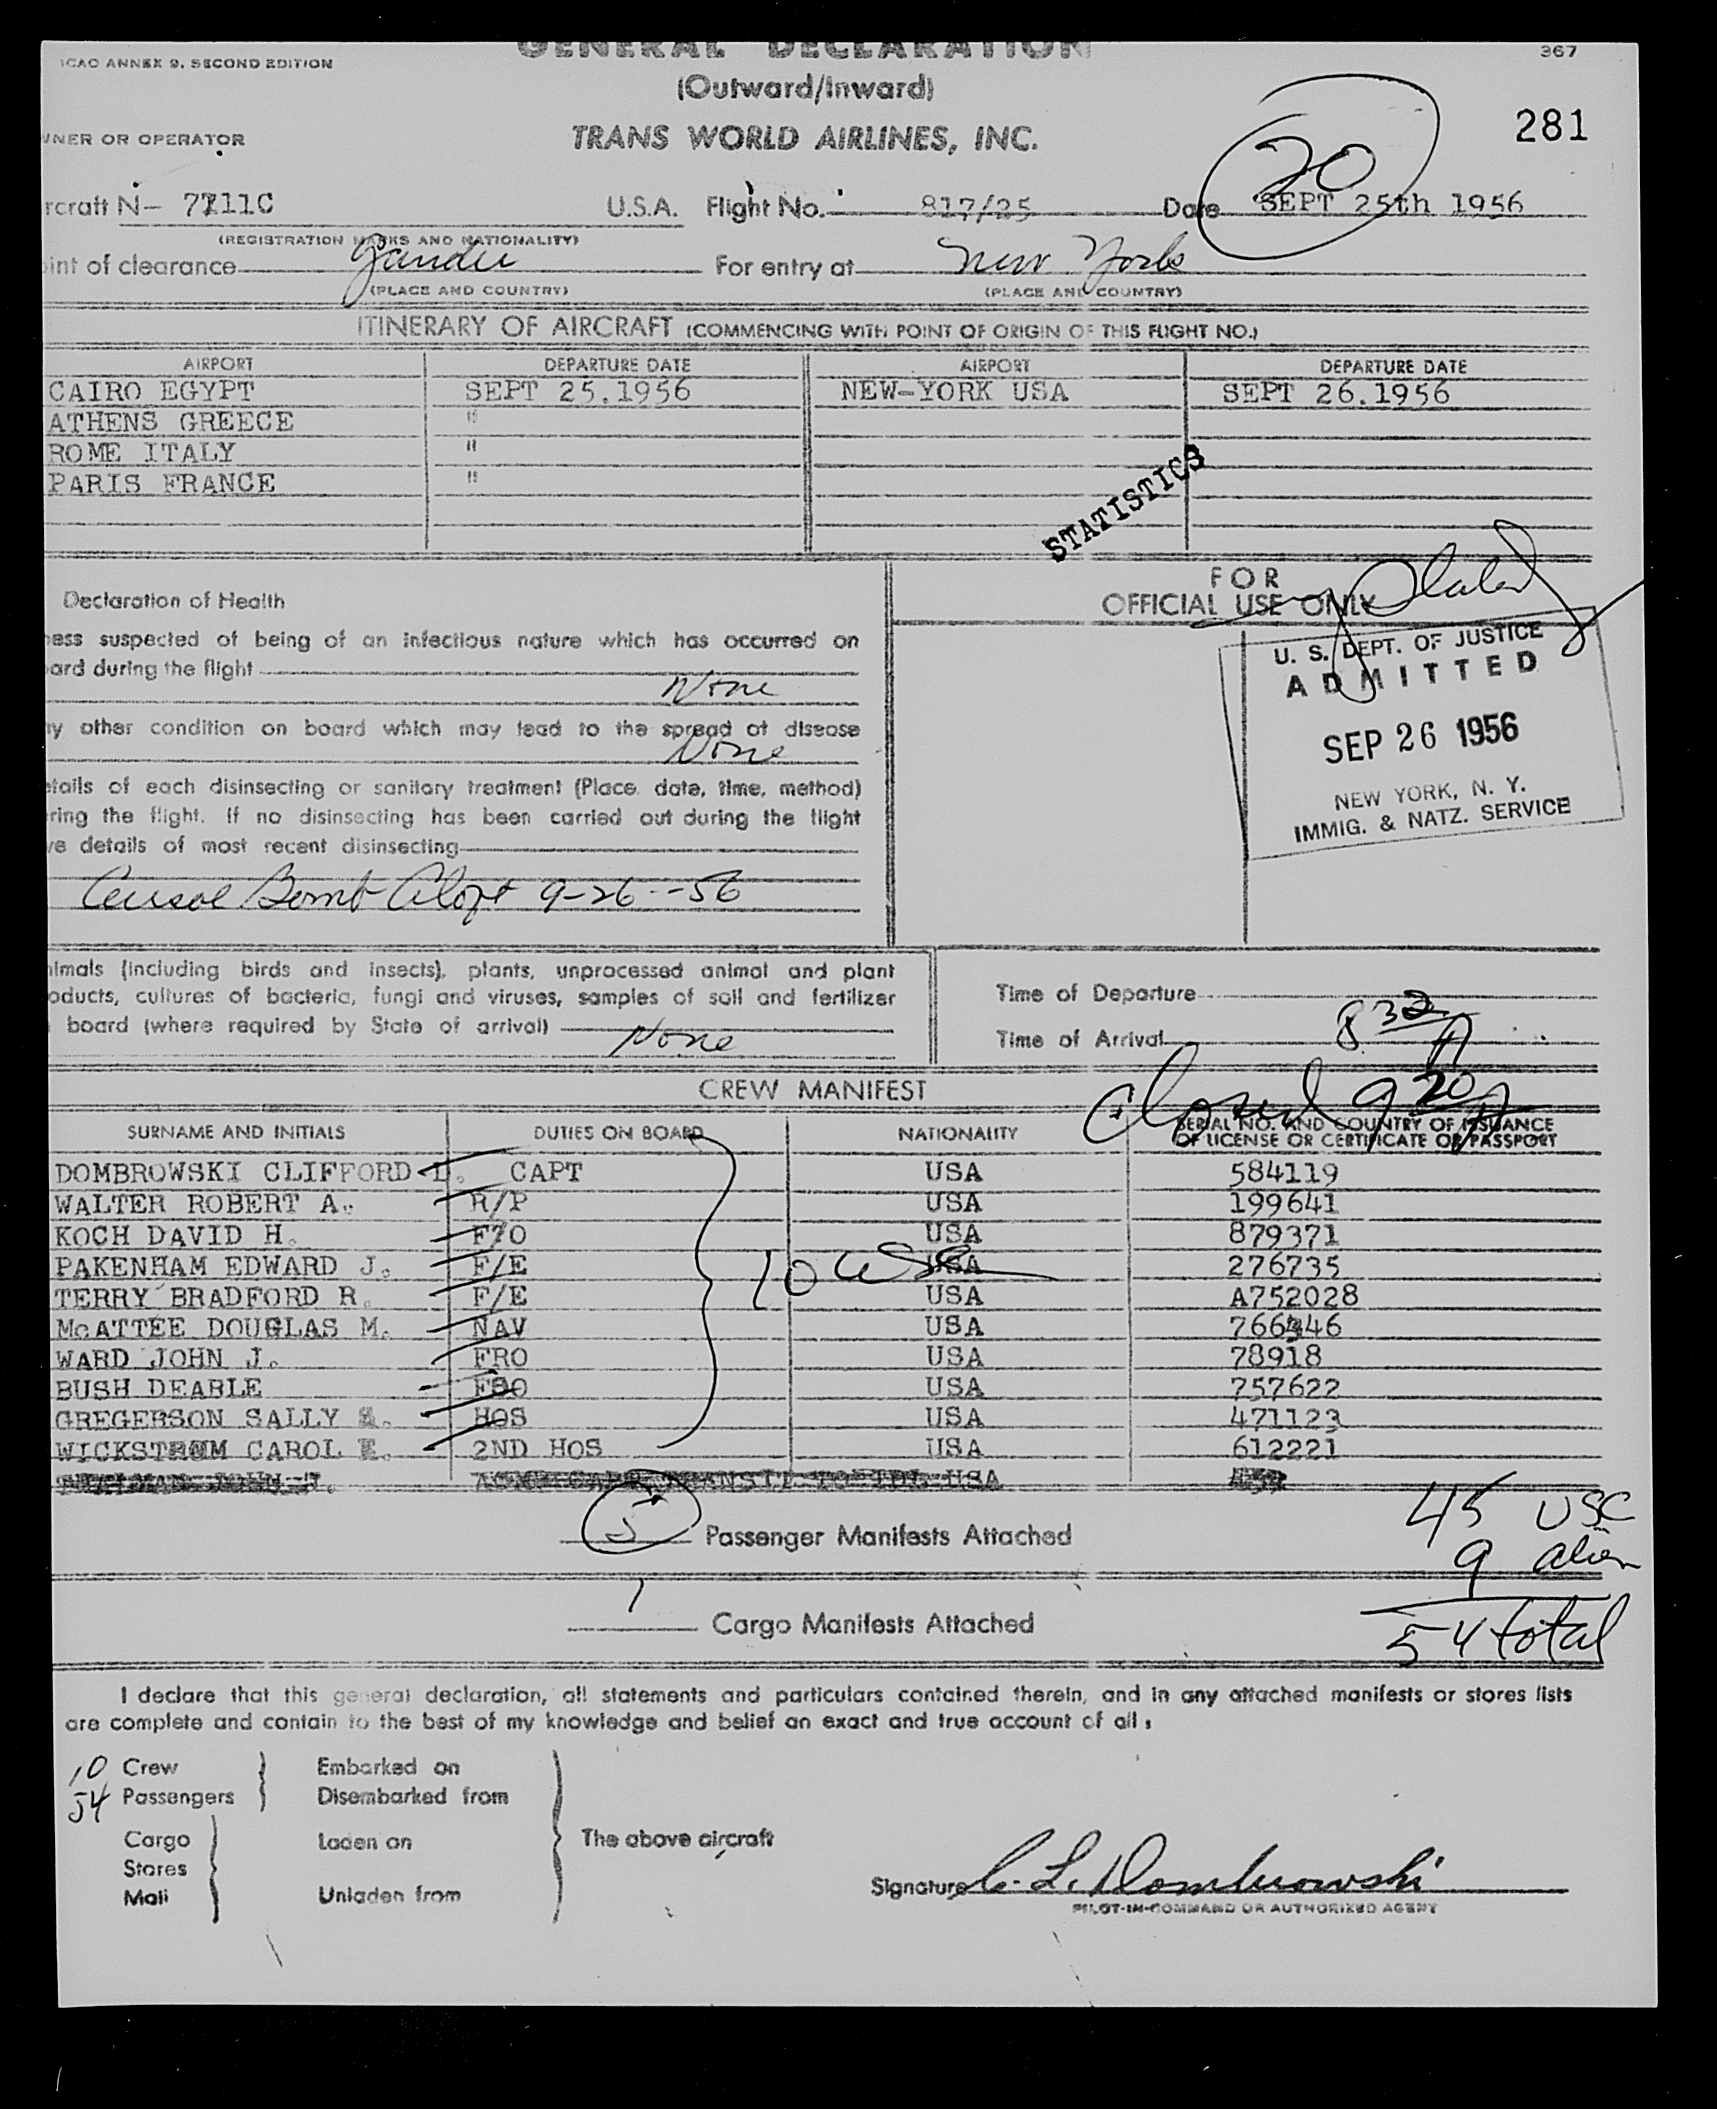 GENERAL DECLARATION
367
ICAO ANNEX 9, SECOND EDITION
(Outward/Inward)
281
WNER OR OPERATOR
TRANS WORLD AIRLINES, INC.
20
rcraft N- 7111C U.S.A. Flight No. 817/25 Date SEPT 25th 1956
(REGISTRATION MARKS AND NATIONALITY)
oint of clearance Gander For entry at New York
(PLACE AND COUNTRY) (PLACE AND COUNTRY)
ITINERARY OF AIRCRAFT (COMMENCING WITH POINT OF ORIGIN OF THIS FLIGHT NO.)
AIRPORT DEPARTURE DATE AIRPORT DEPARTURE DATE
CAIRO EGYPT SEPT 25.1956 NEW-YORK USA SEPT 26.1956
ATHENS GREECE "
ROME ITALY "
PARIS FRANCE "
STATISTICS
FOR
OFFICIAL USE ONLY
Declaration of Health
ness suspected of being of an infectious nature which has occurred on
oard during the flight
None
ny other condition on board which may lead to the spread of disease
None
etails of each disinsecting or sanitary treatment (Place, date, time, method)
ring the flight. If no disinsecting has been carried out during the flight
ve details of most recent disinsecting
Bomb 9-26--56
U. S. DEPT. OF JUSTICE
ADMITTED
SEP 26 1956
NEW YORK, N. Y.
IMMIG. & NATZ. SERVICE
nimals (including birds and insects), plants, unprocessed animal and plant
oducts, cultures of bacteria, fungi and viruses, samples of soil and fertilizer
board (where required by State of arrival) None
Time of Departure
Time of Arrival 8 32 A
CREW MANIFEST
Closed 9 20 A
SURNAME AND INITIALS DUTIES ON BOARD NATIONALITY SERIAL NO. AND COUNTRY OF ISSUANCE
OF LICENSE OR CERTIFICATE OR PASSPORT
DOMBROWSKI CLIFFORD L. CAPT USA 584119
WALTER ROBERT A. R/P USA 199641
KOCH DAVID H. F/O USA 879371
PAKENHAM EDWARD J. F/E USA 276735
TERRY BRADFORD R. F/E USA A752028
McATTEE DOUGLAS M. NAV USA 766446
WARD JOHN J. FRO USA 78918
BUSH DEABLE FSO USA 757622
GREGERSON SALLY HOS USA 471123
WICKSTROM CAROL E. 2ND HOS USA 612221
10 USC
5 Passenger Manifests Attached
45 USC
9 alien
54 total
1 Cargo Manifests Attached
I declare that this general declaration, all statements and particulars contained therein, and in any attached manifests or stores lists
are complete and contain to the best of my knowledge and belief an exact and true account of all:
10 Crew Embarked on
54 Passengers Disembarked from
Cargo Laden on The above aircraft
Stores
Mail Unladen from
Signature C. L. Dombrowski
PILOT-IN-COMMAND OR AUTHORIZED AGENT